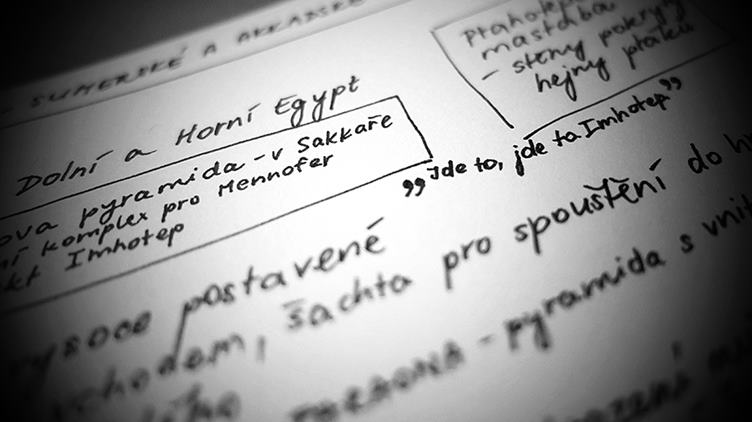 - SUMERSKÉ A AKKADSKÉ
Ptahotep
mastaba
- stěny pokryty
hejny ptáků
Dolní a Horní Egypt
ova pyramida - v Sakkaře
ní komplex pro Mennofer
kt Imhotep
„Jde to, jde ta Imhotep”
vysoce postavené
chodem, šachta pro spouštění do h
FARAONA - pyramida s vnit